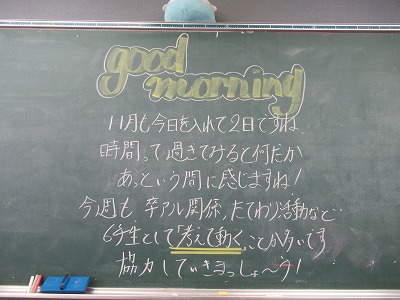 good
morning
11月も今日を入れて2日ですね
時間って過ぎてみると何だか
あっという間に感じますね!
今週も、卒アル関係、たてわり活動など
6年生として「考えて動く」ことが多いです
協力していきまっしょ〜う!